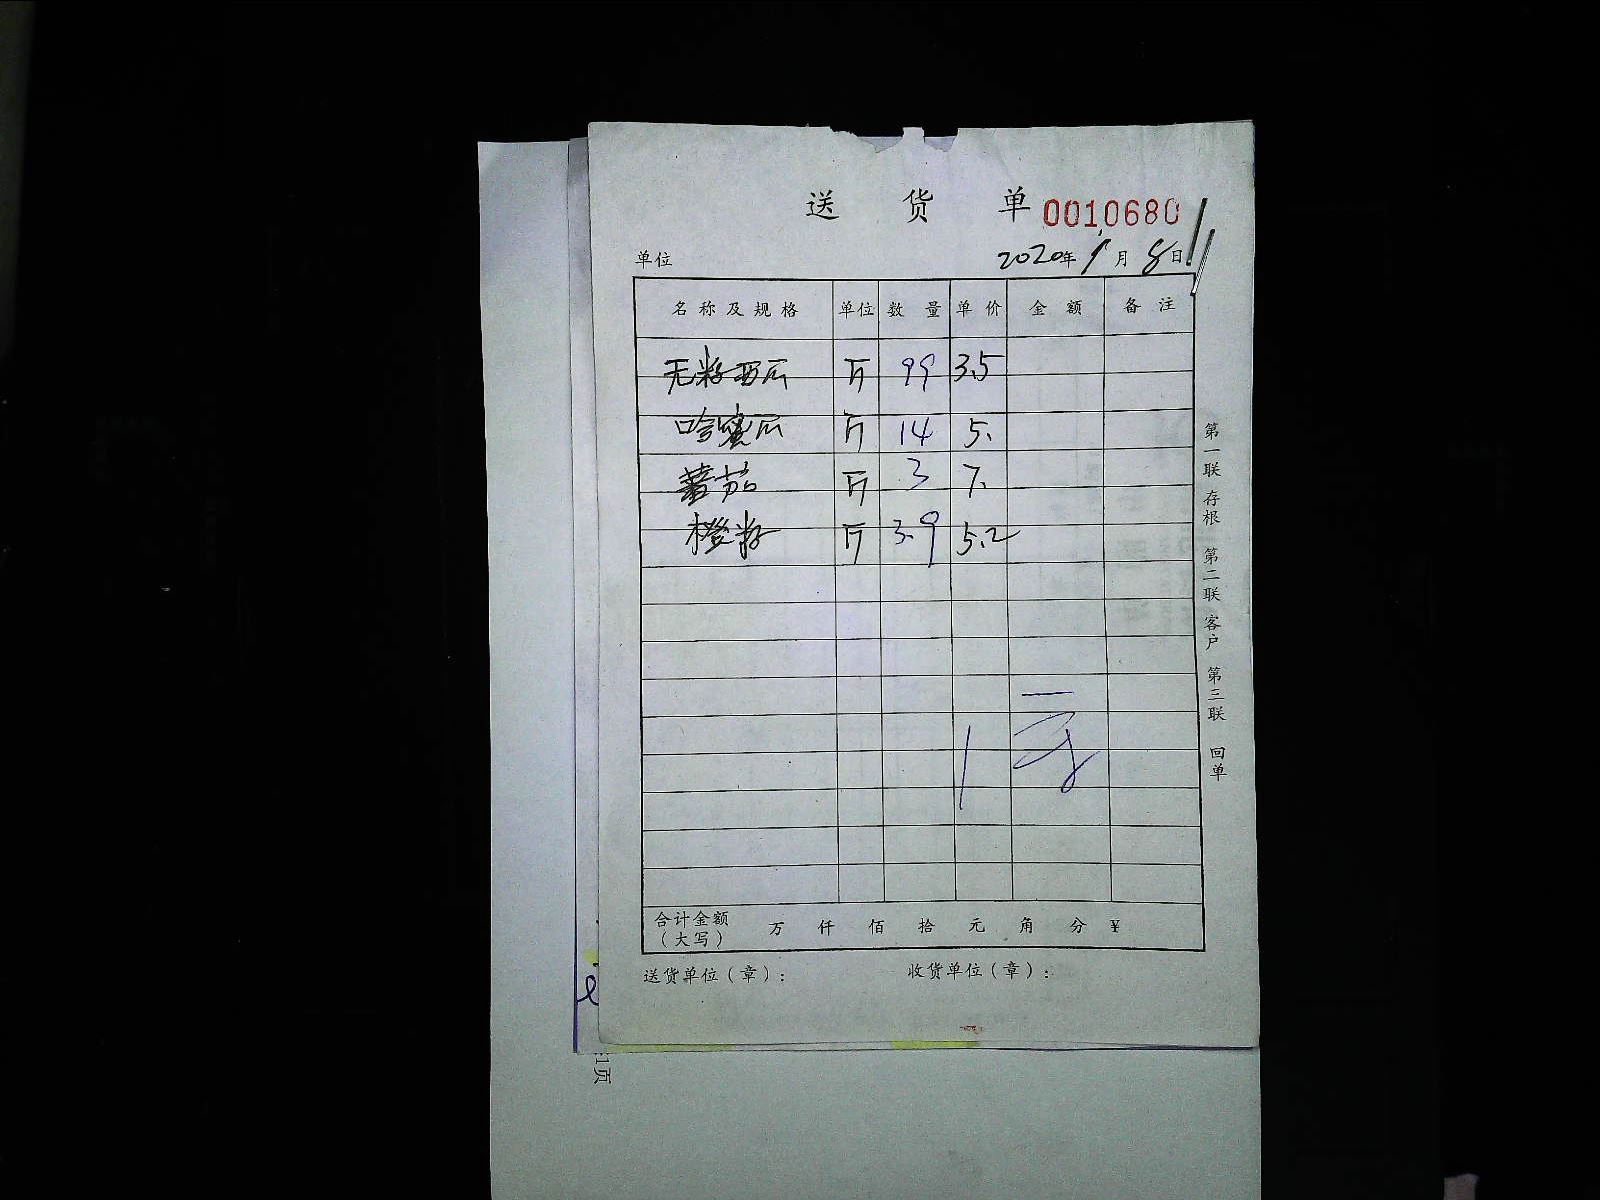 送货单 0010680
单位 2020年9月8日
名称及规格 单位 数量 单价 金额 备注
无籽西瓜 斤 99 3.5
哈蜜瓜 斤 14 5.
蕃茄 斤 3 7.
橙籽 斤 3.9 5.2
合计金额（大写） 万 仟 佰 拾 元 角 分 ¥
送货单位（章）： 收货单位（章）：
第一联 存根 第二联 客户 第三联 回单
页